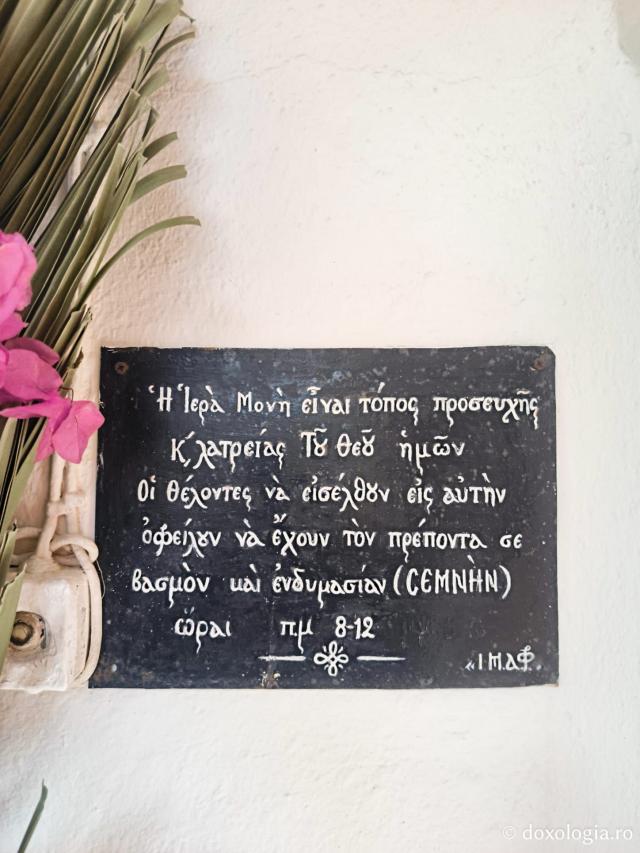 Ἡ Ἱερὰ Μονὴ εἶναι τόπος προσευχῆς
Κ, λατρείας Τȣ͂ Θεȣ͂ ἡμῶν
Οἱ θέλοντες νὰ εἰσέλθȣν εἰς αὐτὴν
ὀφείλȣν νὰ ἔχουν τὸν πρέποντα σε
βασμὸν καὶ ἐνδυμασίαν (CΕΜΝῊΝ)
ὧραι π.μ 8-12
© doxologia.ro